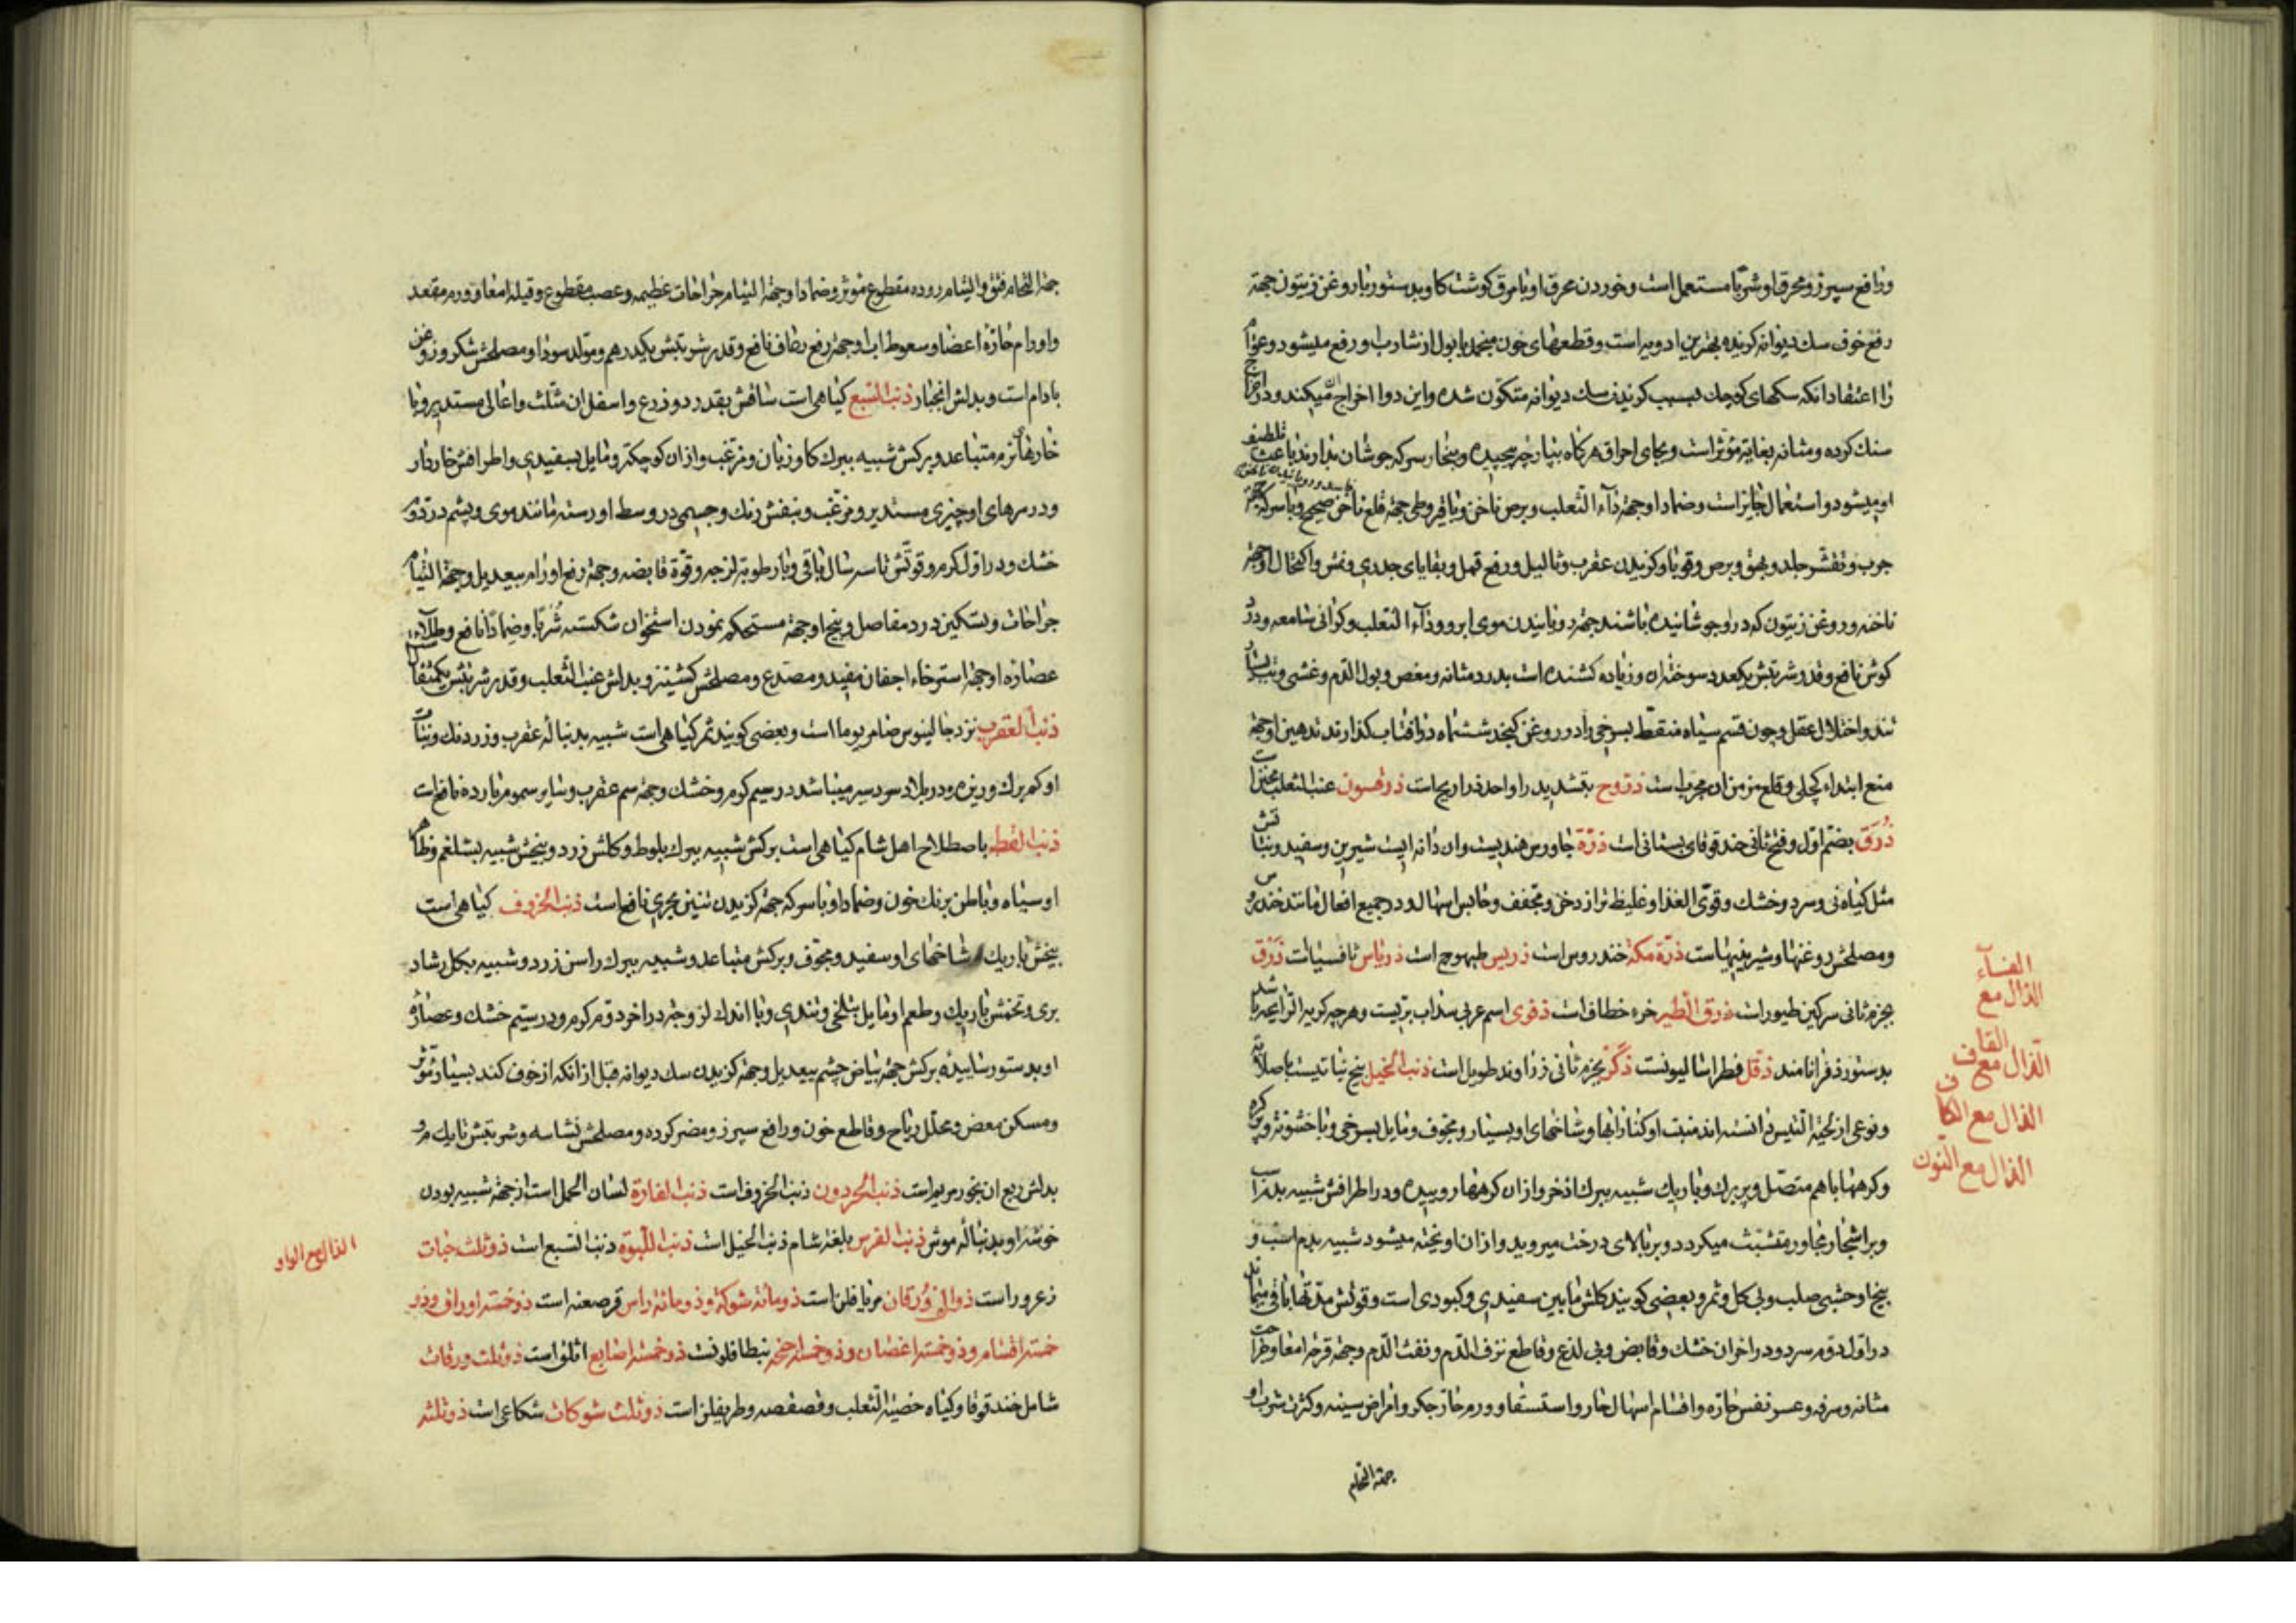 ورافع سپرز و محرق او شربا مستعمل است و خوردن محرق او با مرق کوشت کاو بدستور با روغن زیتون جهة
رفع خوف سك دیوانه کزیده بهترین ادویه است و قطعهای خون منجمد با بول از شارب او رفع میشود و عوام
را اعتقاد انکه سکهای کوچك بسبب کزیدن سك دیوانه متکون شده و این دوا اخراج میکند و در اخراج
سنك کرده و مثانه بغایة مؤثر است و بجای احراق هرکاه بپارچه پیچیده و ببخار سرکه جوشان بدارند باعث تلطیف
او میشود و استعمال جایز است و ضماد او جهة دآء الثعلب و برص ناخن و با قیروطی جهة قلع ناخن صحیح و با سرکه جهة
جرب و تقشر جلد و بهق و برص و قوبا و کزیدن عقرب و ثالیل و رفع قمل و بقایای جدری و نمش و اکتحال او جهة
ناخنه و روغن زیتون که در او جوشانیده باشند جهة رویانیدن موی ابرو و دآء الثعلب و کرانی سامعه و درد
کوش نافع و قدر شربتش یکعدد سوخته ان و زیاده کشنده است بدرد مثانه و مغص و بول الدم و غشی و تب بسیار
تند و اختلال عقل و چون قسم سیاه منقط بسرخی را در روغن کنجد ششماه در افتاب کذارند تدهین او جهة
منع ابتداء کچلی و قلع مزمن ان مجرب است ذروح بتشدید را واحد ذراریح است ذرقسون عنب الثعلب مخدر است
ذرق بضم اول و فتح ثانی حندقوقای بستانی است ذرة جاورس هندیست و ان دانه ایست شیرین و سفید و نباتش
مثل کیاه نی و سرد و خشك و قوی الغذا و غلیظ تر از دخن و مجفف و حابس اسهال و در جمیع افعال مانند خندروس
و مصلحش روغنها و شیرینیهاست ذرة مکة خندروس است ذریس طیهوج است ذریاس ثافسیاست ذرق
بجزم ثانی سرکین طیور است ذرق الطیر خرء خطاف است ذفری اسم عربی سذاب بریست و هر چه کریه الرایحه باشد
بدستور ذفرا نامند ذقل فطراسالیونست ذکر بجزم ثانی زراوند طویل است ذنب الخیل بیخ نباتیست باصلابة
و نوعی از لحیة التیس دانسته اند منبت او کنار ابها و شاخهای او بسیار و مجوف و مایل بسرخی و با خشونة و پرکره
و کرهها با هم متصل و پر برك و باریك شبیه ببرك اذخر و از ان کرهها روییده و در اطرافش شبیه بدم اسب
و بر اشجار مجاور متشبث میکردد و بر بالای درخت میروید و از ان اویخته میشود شبیه بدم اسب و
بیخ او خشبی صلب و بی کل و ثمر و بعضی کویند کلش مابین سفیدی و کبودی است و قوتش مدتها باقی میماند
در اول دوم سرد و در اخر ان خشك و قابض و بی لذع و قاطع نزف الدم و نفث الدم و جهة قرحه امعا و جراحت
مثانه و سرفه و عسر نفس حاره و اقسام اسهال حار و استسقا و ورم حار جکر و امراض سینه و کثرت شرب او
جهة التحام
الفآء
الذال مع
القاف
الذال مع
الذال مع الکاف
الذال مع النون
جهة التحام فتق و التیام روده مقطوع مؤثر و ضماد او جهة التیام جراحات عظیمه و عصب مقطوع و قیله امعا و ورم مقعد
و اورام حارة اعضا و سعوط اب او جهة رفع رعاف نافع و قدر شربتش یکدرهم و مولد سودا و مصلحش شکر و روغن
بادام است و بدلش انجبار ذنب السبع کیاهی است ساقش بقدر دو ذرع و اسفل ان مثلث و اعالی مستدیر و با
خارهای نرم متباعد و برکش شبیه ببرك کاو زبان و مزغب و از ان کوچکتر و مایل بسفیدی و اطرافش خاردار
و در سرهای او چیزی مستدیر و مزغب و بنفش رنك و جسمی در وسط او رسته مانند موی و پشم در دوم
خشك و در اول کرم و قوتش تا سه سال باقی و با رطوبة لزجه و قوة قابضه و جهة رفع اورام بیعدیل و جهة التیام
جراحات و تسکین درد مفاصل و بیخ او جهة مستحکم نمودن استخوان شکسته شربا و ضمادا نافع و طلاء
عصاره او جهة استرخاء اجفان مفید و مصدع و مصلحش کشنیز و بدلش عنب الثعلب و قدر شربتش یکمثقال
ذنب العقرب نزد جالینوس ضامریوما است و بعضی کویند ثمر کیاهی است شبیه بدنباله عقرب و زرد رنك و نبات
او کم برك و ریزه و در بلاد سردسیر میباشد در سیم کرم و خشك و جهة سم عقرب و سایر سموم بارده نافع است
ذنب القط باصطلاح اهل شام کیاهی است برکش شبیه ببرك بلوط و کلش زرد و بیخش شبیه بشلغم و ظاهر
او سیاه و باطن برنك خون و ضماد او با سرکه جهة کزیدن تنین بحری نافع است ذنب الخروف کیاهی است
بیخش باریك شاخهای او سفید و مجوف و برکش متباعد و شبیه ببرك راسن زرد و شبیه بکل رشاد
بری و تخمش باریك و طعم او مایل بتلخی و تندی و با اندك لزوجة در اخر دوم کرم و در سیم خشك و عصاره
او بدستور ساییده برکش جهة بیاض چشم بیعدیل و جهة کزیدن سك دیوانه قبل از انکه از خوف کند بسیار مؤثر
و مسکن مغص و محلل ریاح و قاطع خون و رافع سپرز و مضر کرده و مصلحش نشاسه و شربتش تا یك درم و
بدلش ربع ان بخور مریم است ذنب الحردون ذنب الخروف است ذنب الفارة لسان الحمل است از جهة شبیه بودن
خوشه او بدنباله موش ذنب الفرس بلغة شام ذنب الخیل است ذنب اللبوة ذنب السبع است ذو ثلث حبات
زعرور است ذو الف ورقان مریافلن است ذو مائة شوکة و ذو مائة راس قرصعنه است ذو خمسة اوراق و ذو
خمسة اقسام و ذو خمسة اغصان و ذو خمسة اجنحه بنطافلونست ذو خمسة اصابع اثلق است ذو ثلث ورقات
شامل حندقوقا و کیاه خصیة الثعلب و فصفصه و طریفلن است ذو ثلث شوکات شکاعی است ذو ثلثه
الذال مع الواو